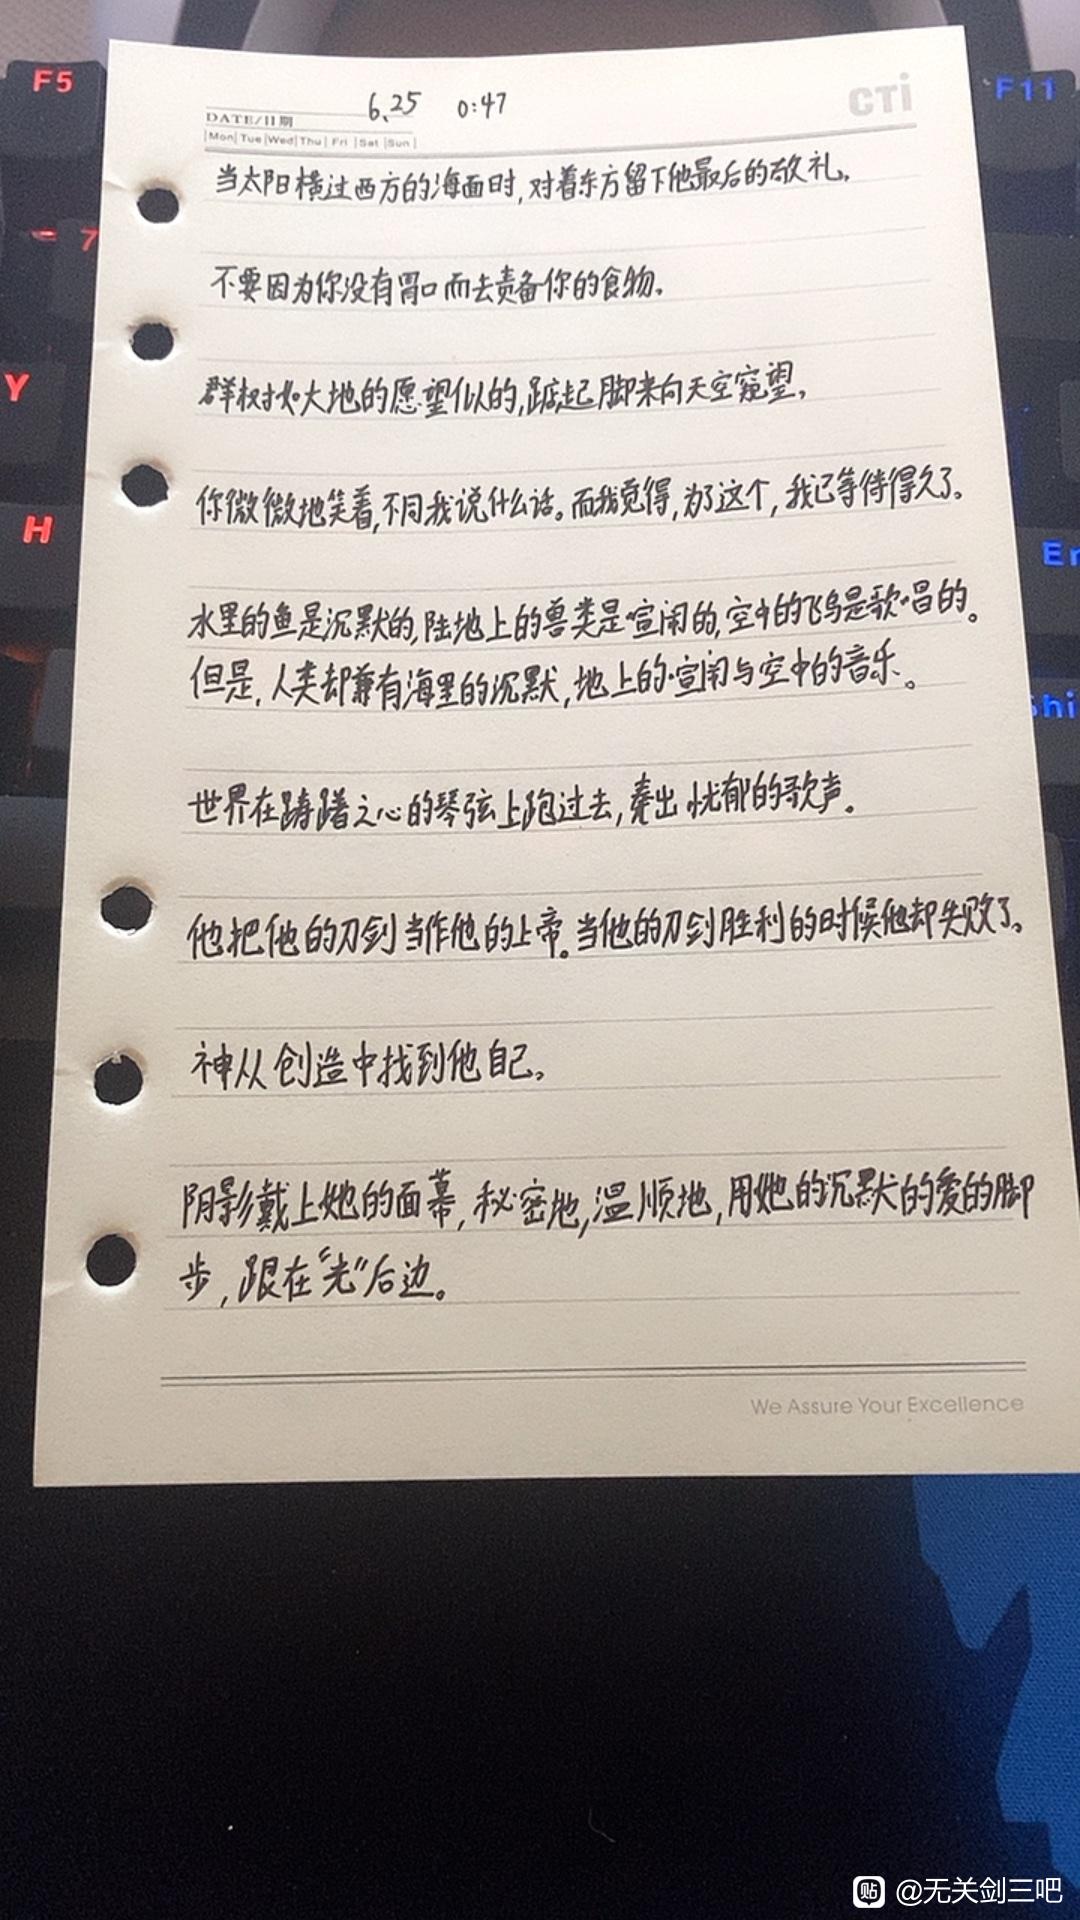 F5
F11
6.25 0:47
CTi
DATE/日期
Mon Tue Wed Thu Fri Sat Sun
当太阳横过西方的海面时,对着东方留下他最后的敬礼。
= 7
不要因为你没有胃口而去责备你的食物。
Y
群树如大地的愿望似的,踮起脚来向天空窥望。
你微微地笑着,不同我说什么话。而我觉得,为了这个,我已等待得久了。
H
En
水里的鱼是沉默的,陆地上的兽类是喧闹的,空中的飞鸟是歌唱的。
但是,人类却兼有海里的沉默,地上的喧闹与空中的音乐。
Shi
世界在踌躇之心的琴弦上跑过去,奏出忧郁的歌声。
他把他的刀剑当作他的上帝。当他的刀剑胜利的时候他却失败了。
神从创造中找到他自己。
阴影戴上她的面幕,秘密地,温顺地,用她的沉默的爱的脚
步,跟在“光”后边。
We Assure Your Excellence
贴 @无关剑三吧